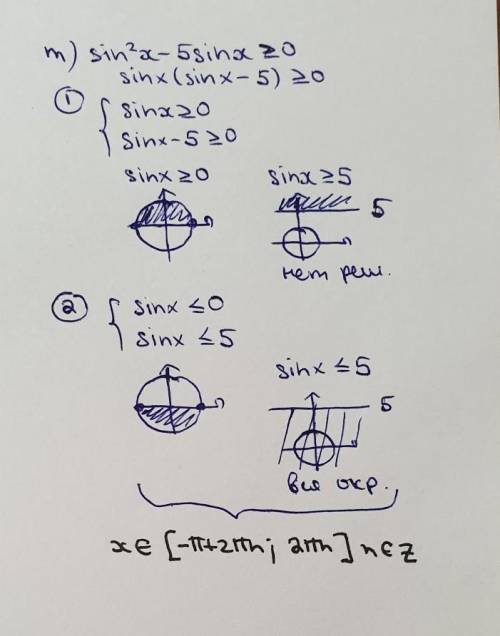 m) sin²x - 5sinx ≥ 0
sinx(sinx - 5) ≥ 0
① { sinx ≥ 0
sinx - 5 ≥ 0
sinx ≥ 0 sinx ≥ 5
5
нет реш.
② { sinx ≤ 0
sinx ≤ 5
sinx ≤ 5
5
вся окр.
x ∈ [-π+2πn; 2πn] n ∈ Z